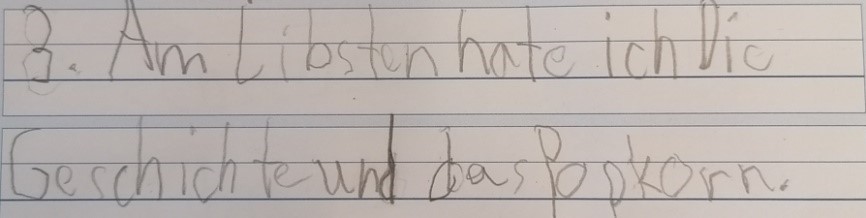 3. Am Libsten hate ich Die
Geschichte und das Popkorn.